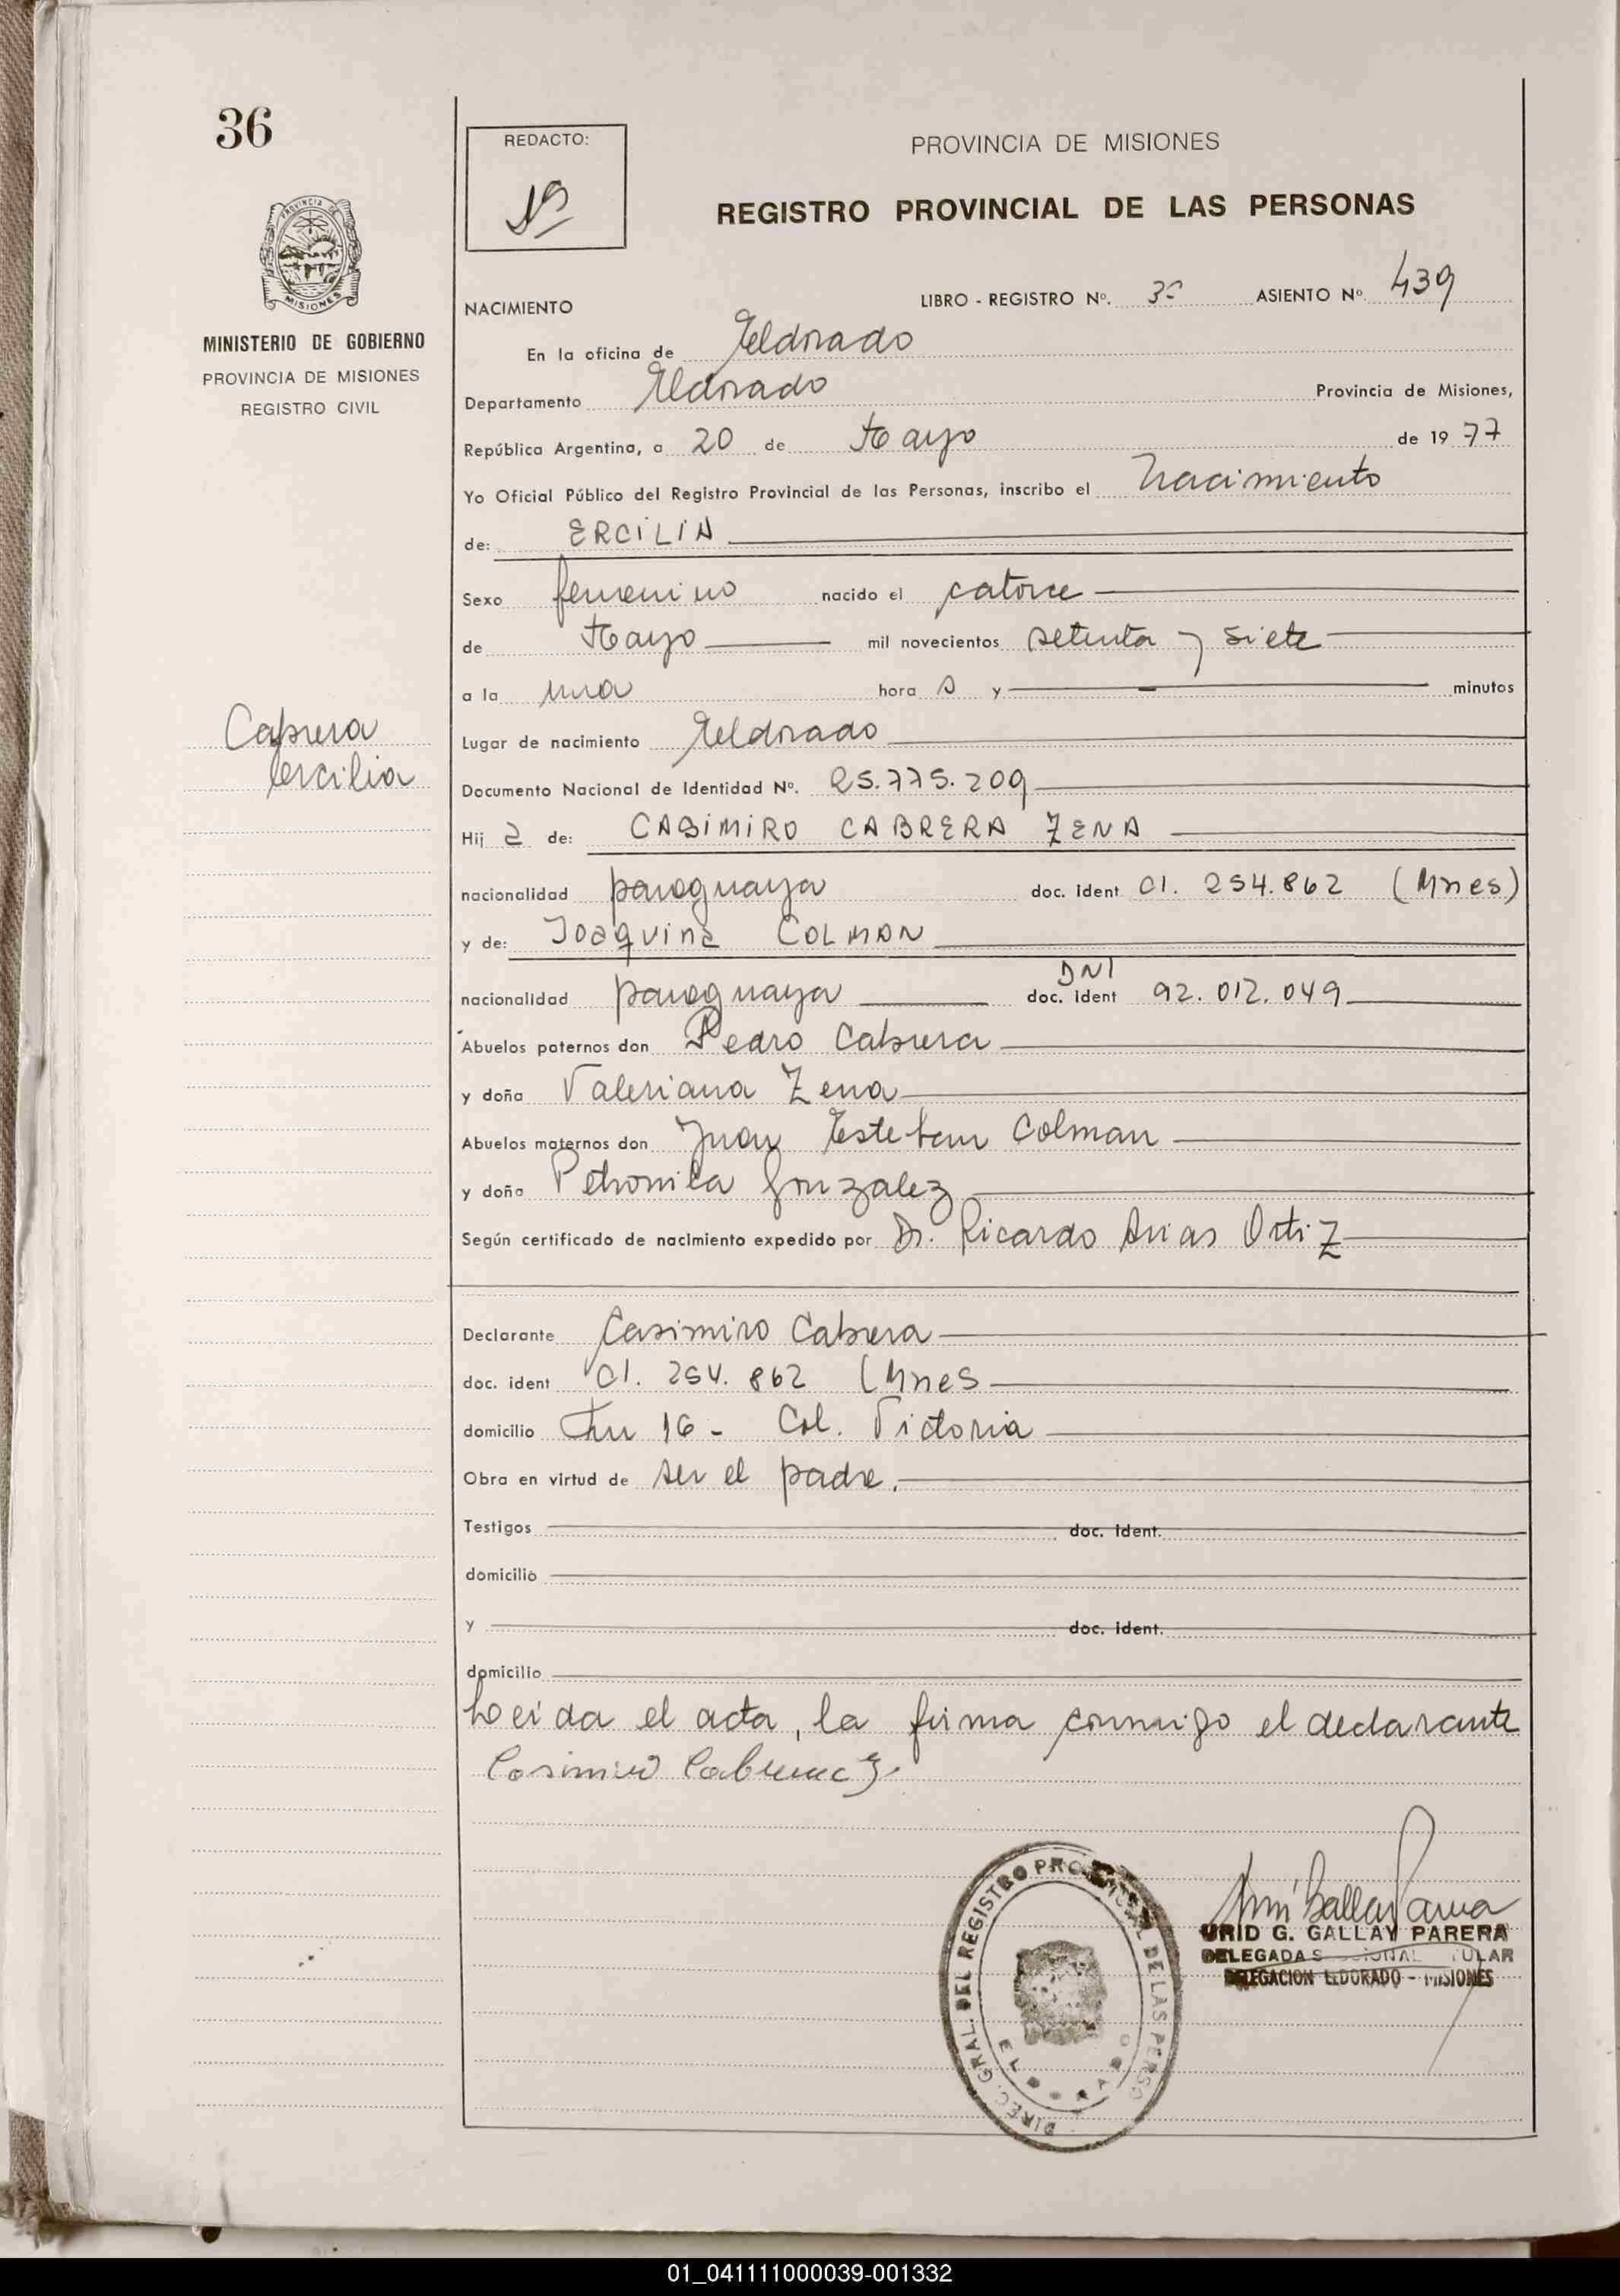 36
REDACTO:
PROVINCIA DE MISIONES
REGISTRO PROVINCIAL DE LAS PERSONAS
PROVINCIA DE
MISIONES
MINISTERIO DE GOBIERNO
PROVINCIA DE MISIONES
REGISTRO CIVIL
NACIMIENTO LIBRO - REGISTRO Nº. ASIENTO Nº 439
En la oficina de Eldorado
Departamento Eldorado Provincia de Misiones,
República Argentina, a 20 de Mayo de 1977
Yo Oficial Público del Registro Provincial de las Personas, inscribo el Nacimiento
de: ERCILIA
Sexo femenino nacido el catorce
de Mayo mil novecientos setenta y siete
a la una hora s y minutos
Cabrera
Ercilia
Lugar de nacimiento Eldorado
Documento Nacional de Identidad Nº. 25.775.209
Hij a de: CASIMIRO CABRERA ZENA
nacionalidad paraguaya doc. ident CI. 254.862 (Mnes)
y de: Joaquina COLMAN
nacionalidad paraguaya DNI doc. ident 92.012.049
Abuelos paternos don Pedro Cabrera
y doña Valeriana Zena
Abuelos maternos don Juan Esteban Colman
y doña Petronila Gonzalez
Según certificado de nacimiento expedido por Dr. Ricardo Arias Ortiz
Declarante Casimiro Cabrera
doc. ident CI. 254.862 (Mnes
domicilio Km 16 - Col. Victoria
Obra en virtud de ser el padre.
Testigos doc. ident.
domicilio
y doc. ident.
domicilio
Leida el acta, la firma conmigo el declarante
Casimiro Cabrera Z.
DIREC. GRAL. DEL REGISTRO PROVINCIAL DE LAS PERSO
ELDORADO
URID G. GALLAY PARERA
DELEGADA
DELEGACION ELDORADO - MISIONES
01_041111000039-001332